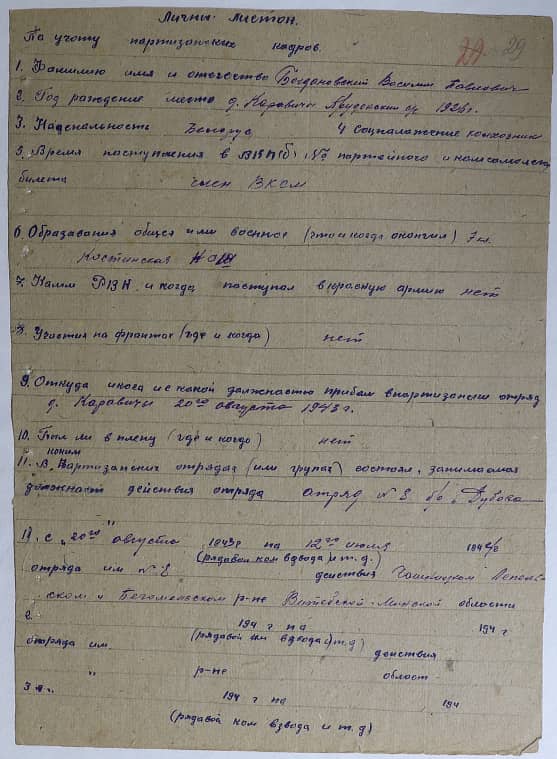 Личны листок.
По учоту партизанских кадров.
29 29
1. Фамилию имя и отечество Богдановский Василий Павлович
2. Год раждение место д. Каравичи 1926 г.
3. Наценальность Белорус 4 Социалажение колхозник
5. Время паступления в ВКП(б) № партейного и комсомольск
билета член ВКСМ
6. Образавания общея или военное (что и когда окончил) 7 кл.
Костинская НСШ
7. Каким РВК и когда паступал вкрасную армию нет
8. Участия на франтах (где и когда) нет
9. Откуда и с какой должностю прибыл впартизански отряд
д. Каравичи 20го августа 1943 г.
10. Был ли в плену (где и когдо) нет
каким
11. В партизанских отрядах (или групах) состоял, занимаемая
должнаст действия отряда отряд № 8 бр. Дубова
1. с "20го" августа 1943 г по 12го июля 194 г
(рядавой ком взвода и т.д.)
отряда им № 8 действия Чашницком Лепель
ском и Бегомльском р-не Витебской-Минской области
2. 194 г па 194 г
(рядавой ком взвода и т.д)
отряда им. действия
" р-не област
3 194 г по 194
(рядавой ком взвода и т.д)